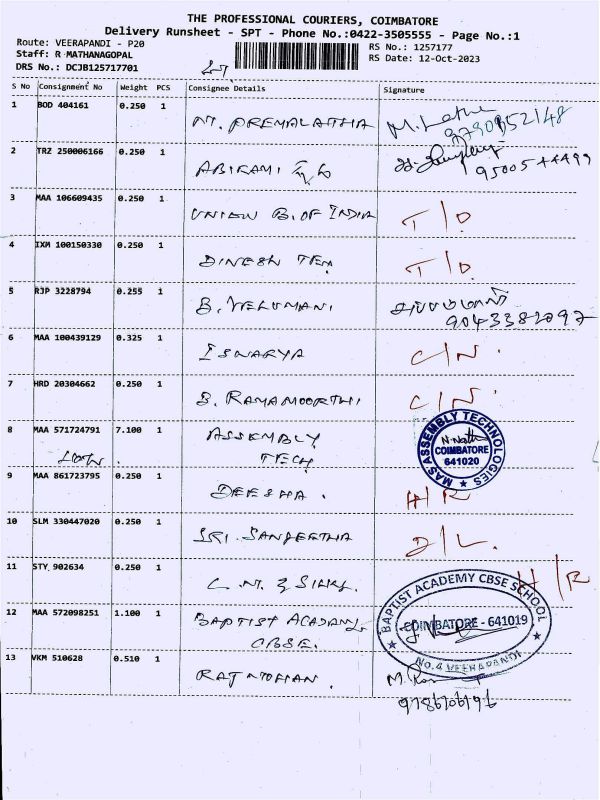 THE PROFESSIONAL COURIERS, COIMBATORE
Delivery Runsheet - SPT - Phone No.:0422-3505555 - Page No.:1
Route: VEERAPANDI - P20
RS No.: 1257177
Staff: R MATHANAGOPAL
RS Date: 12-Oct-2023
DRS No.: DCJB125717701
S No Consignment No Weight PCS Consignee Details Signature
1 BOD 404161 0.250 1 M. PREMALATHA M. Latha
9790952148
2 TRZ 250006166 0.250 1 ABIRAMI
9500544499
3 MAA 106609435 0.250 1 UNION B. OF INDIA T/D
4 IXM 100150330 0.250 1 DINESH TEX T/D.
5 RJP 3228794 0.255 1 B. VELUMANI
9043382097
6 MAA 100439129 0.325 1 ISWARYA C/N.
7 HRD 20304662 0.250 1 B. RAMAMOORTHI C/N.
8 MAA 571724791 7.100 1 ASSEMBLY
TECH
MAS ASSEMBLY TECHNOLOGIES
COIMBATORE
641020
9 MAA 861723795 0.250 1 DEESHA. H/R
10 SLM 330447020 0.250 1 SRI. SANGEETHA D/L.
11 STY 902634 0.250 1 H/R
12 MAA 572098251 1.100 1 BAPTIST ACADAMY
CBSE.
BAPTIST ACADEMY CBSE SCHOOL
COIMBATORE - 641019
No.4 VEERAPANDI
13 VKM 510628 0.510 1 RAJ MOHAN.